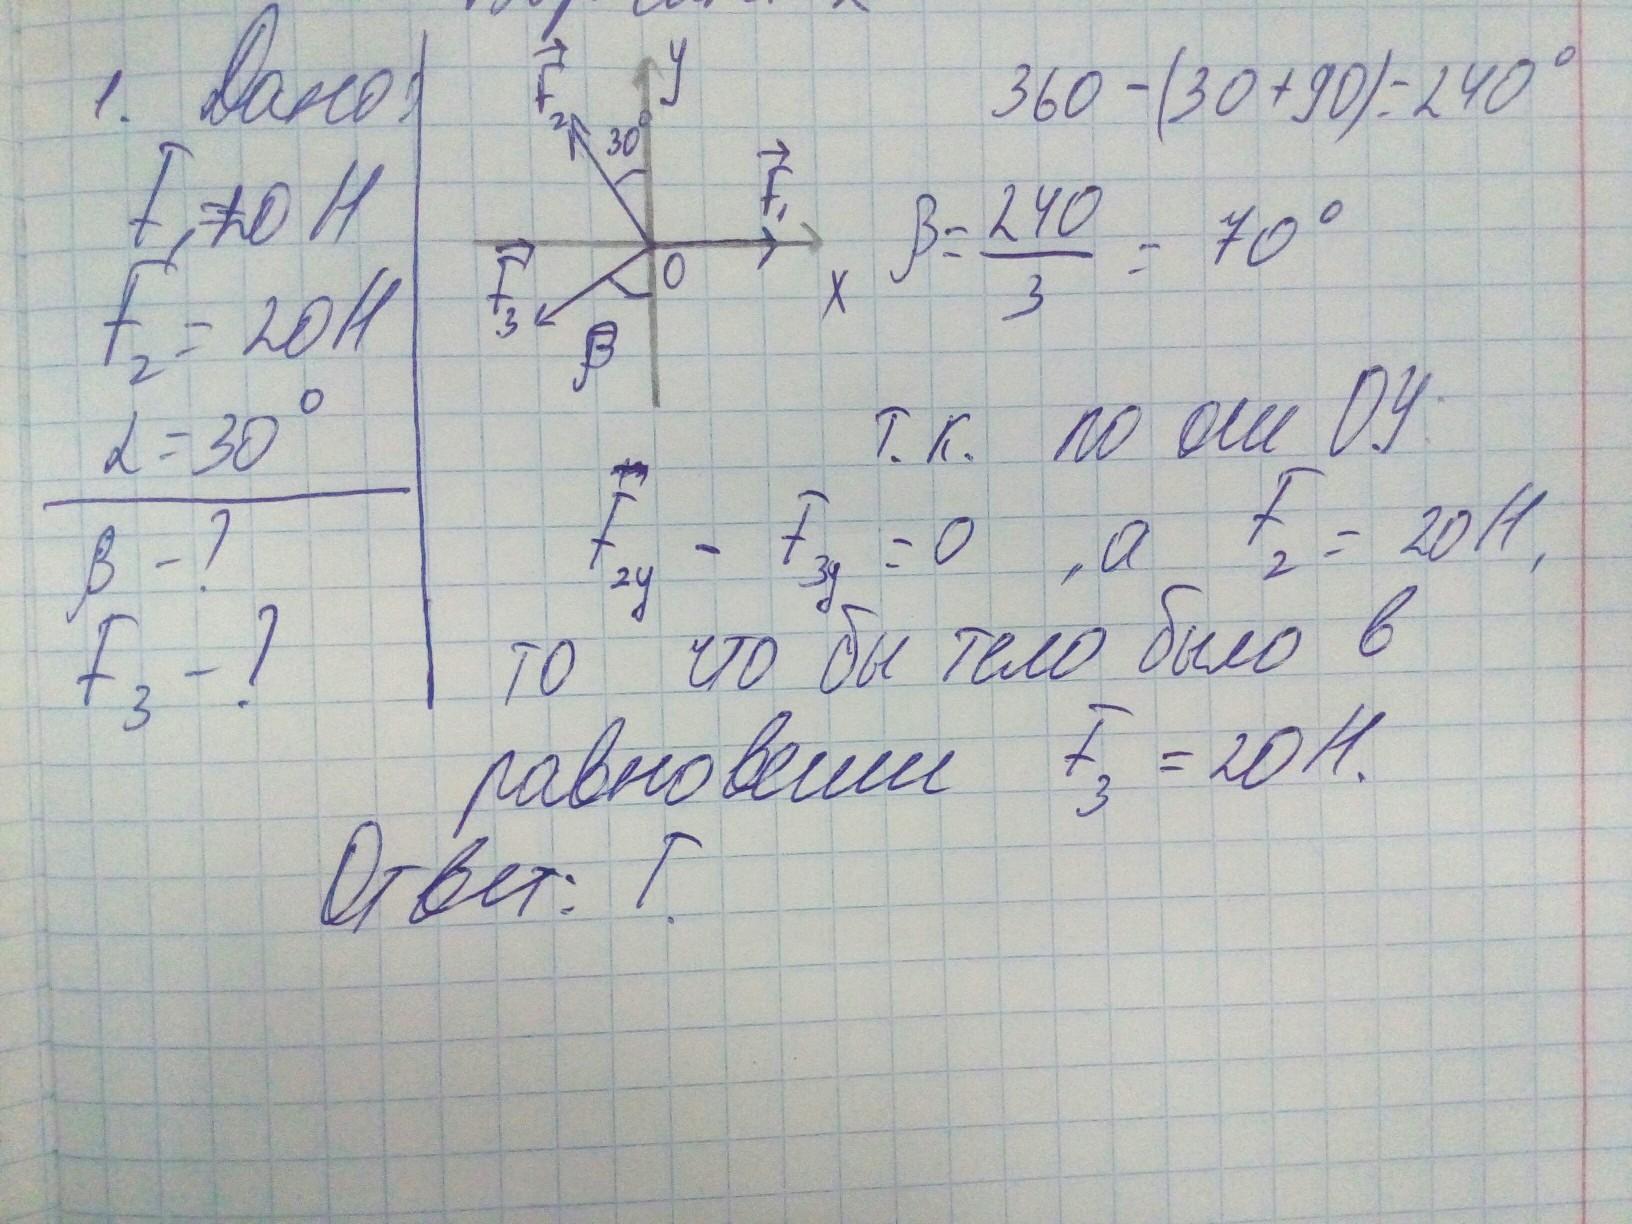 1. Дано:
F₁=10 Н
F₂ = 20 Н
α = 30°
β - ?
F₃ - ?
F₂
30°
y
F₁
F₃
0
x
β
360 - (30 + 90) = 240°
β = 240/3 = 70°
т.к. по оси OY:
F₂y - F₃y = 0 , а F₂ = 20 Н,
то что бы тело было в
равновесии F₃ = 20 Н.
Ответ: Г.